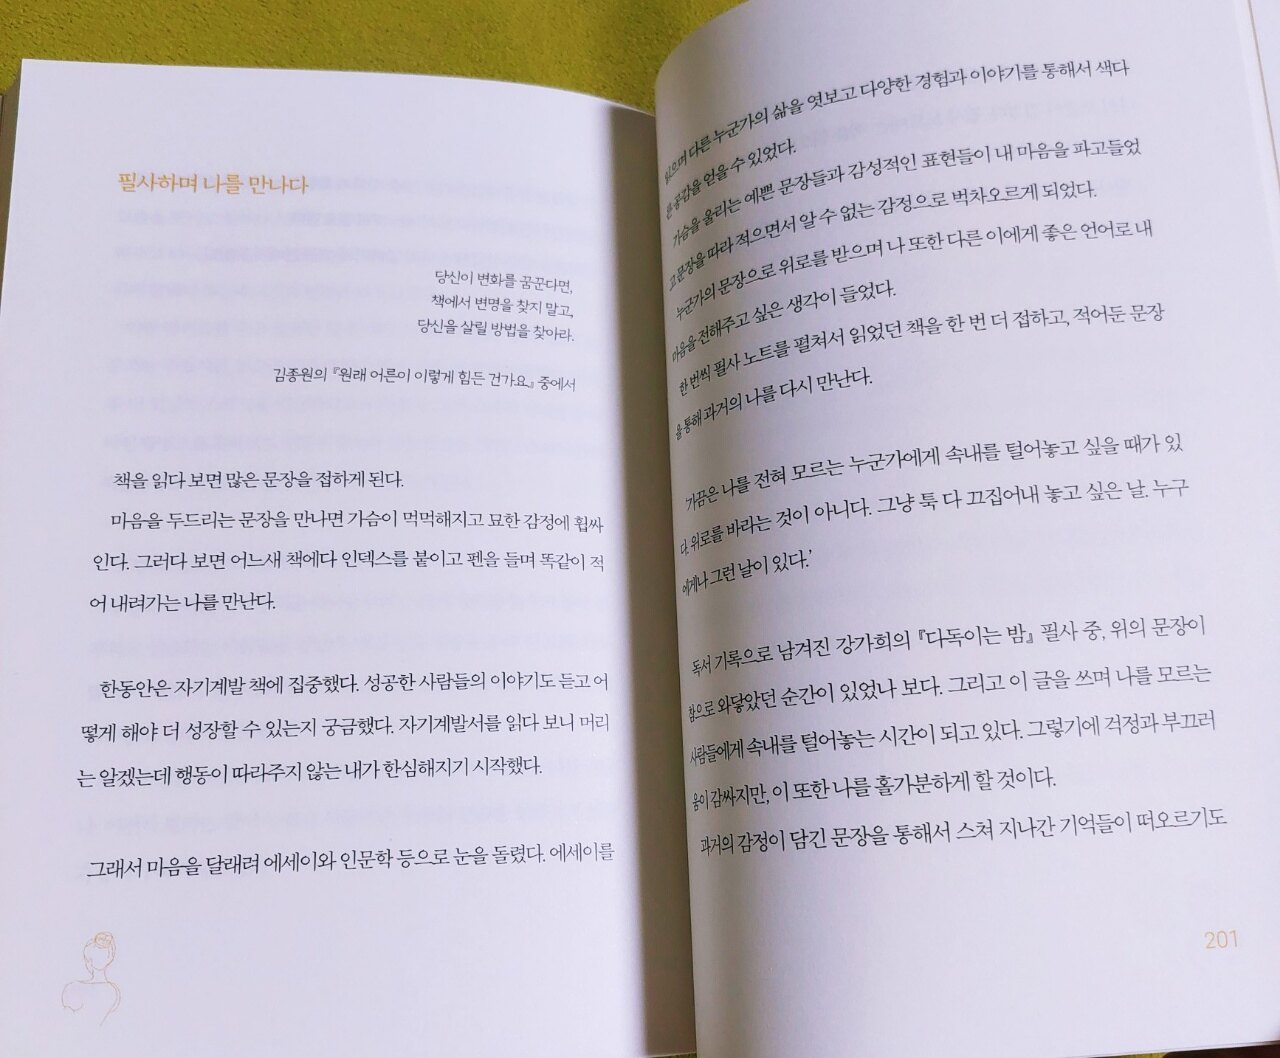 필사하며 나를 만나다
당신이 변화를 꿈꾼다면,
책에서 변명을 찾지 말고,
당신을 살릴 방법을 찾아라.
김종원의 『원래 어른이 이렇게 힘든 건가요』 중에서
책을 읽다 보면 많은 문장을 접하게 된다.
마음을 두드리는 문장을 만나면 가슴이 먹먹해지고 묘한 감정에 휩싸
인다. 그러다 보면 어느새 책에다 인덱스를 붙이고 펜을 들며 똑같이 적
어 내려가는 나를 만난다.
한동안은 자기계발 책에 집중했다. 성공한 사람들의 이야기도 듣고 어
떻게 해야 더 성장할 수 있는지 궁금했다. 자기계발서를 읽다 보니 머리
는 알겠는데 행동이 따라주지 않는 내가 한심해지기 시작했다.
그래서 마음을 달래려 에세이와 인문학 등으로 눈을 돌렸다. 에세이를
읽으며 다른 누군가의 삶을 엿보고 다양한 경험과 이야기를 통해서 색다
른 공감을 얻을 수 있었다.
가슴을 울리는 예쁜 문장들과 감성적인 표현들이 내 마음을 파고들었
고 문장을 따라 적으면서 알 수 없는 감정으로 벅차오르게 되었다.
누군가의 문장으로 위로를 받으며 나 또한 다른 이에게 좋은 언어로 내
마음을 전해주고 싶은 생각이 들었다.
한 번씩 필사 노트를 펼쳐서 읽었던 책을 한 번 더 접하고, 적어둔 문장
을 통해 과거의 나를 다시 만난다.
'가끔은 나를 전혀 모르는 누군가에게 속내를 털어놓고 싶을 때가 있
다. 위로를 바라는 것이 아니다. 그냥 툭 다 끄집어내 놓고 싶은 날. 누구
에게나 그런 날이 있다.'
독서 기록으로 남겨진 강가희의 『다독이는 밤』 필사 중, 위의 문장이
함으로 와닿았던 순간이 있었나 보다. 그리고 이 글을 쓰며 나를 모르는
사람들에게 속내를 털어놓는 시간이 되고 있다. 그렇기에 걱정과 부끄러
움이 감싸지만, 이 또한 나를 홀가분하게 할 것이다.
과거의 감정이 담긴 문장을 통해서 스쳐 지나간 기억들이 떠오르기도
201